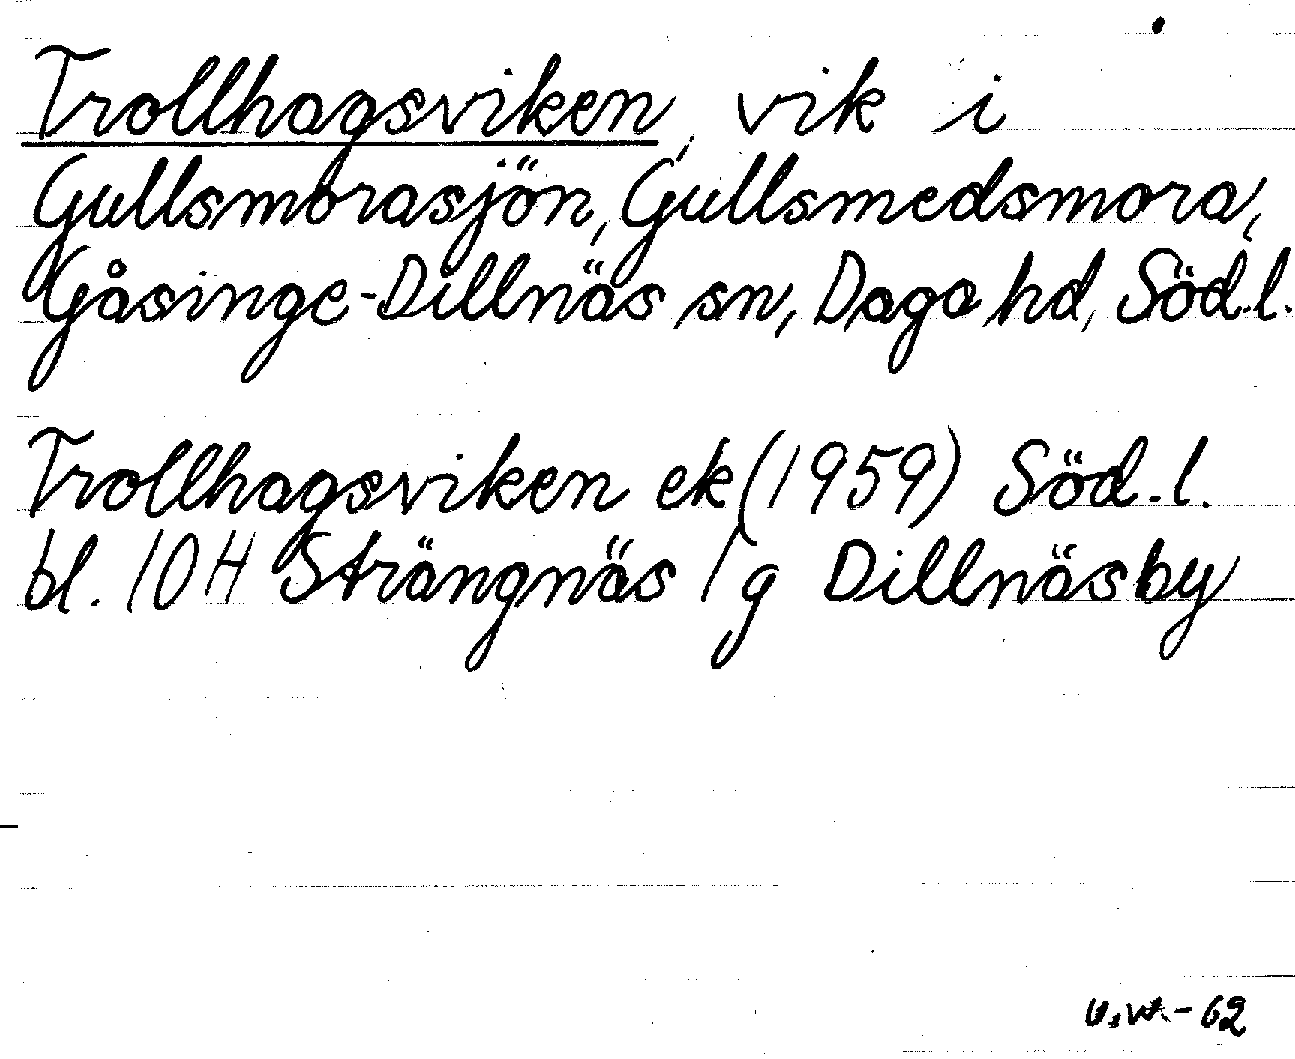 Trollhagsviken, vik i
Gullsmorasjön, Gullsmedsmora,
Gåsinge-Dillnäs sn, Daga hd, Söd.l.
Trollhagsviken ek (1959) Söd.l.
bl. 10H Strängnäs 1g Dillnäsby
-62